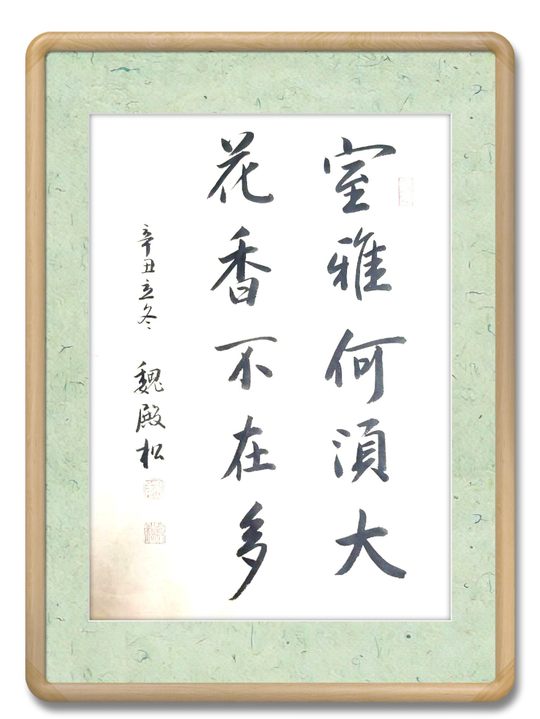 室雅何須大
花香不在多
辛丑立冬 魏殿松